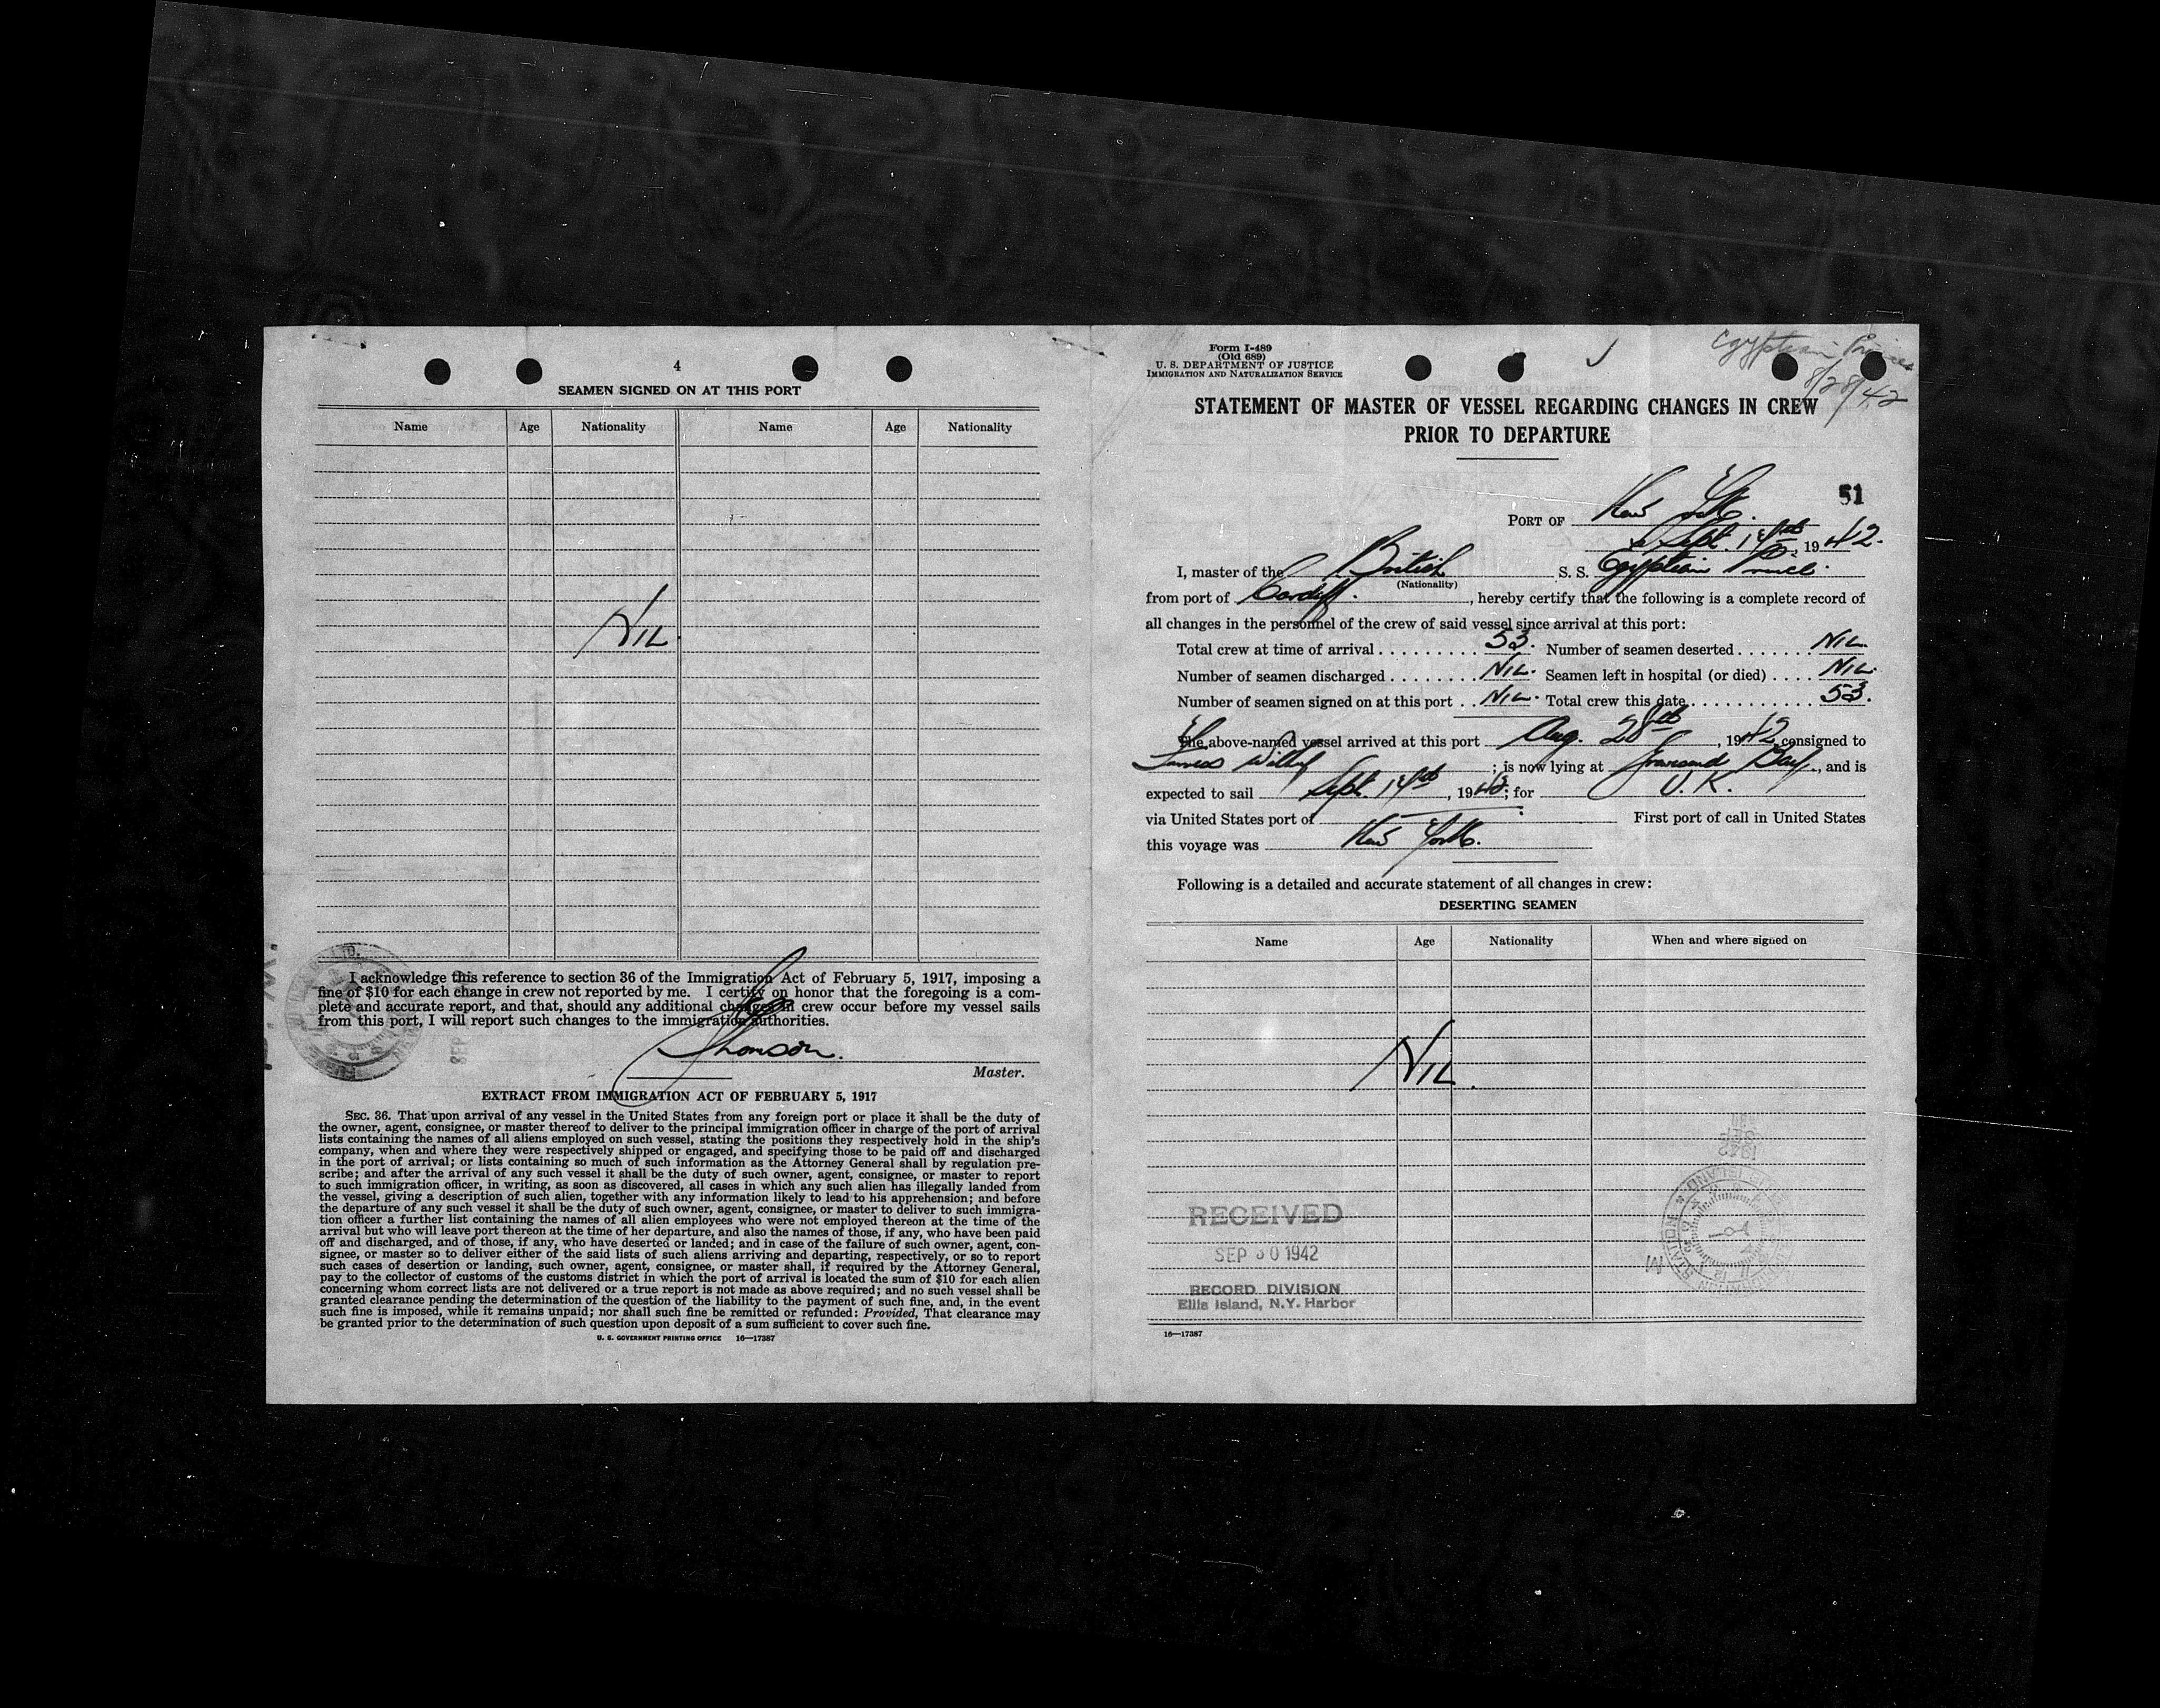 4
SEAMEN SIGNED ON AT THIS PORT
Name Age Nationality Name Age Nationality
NIL.
I acknowledge this reference to section 36 of the Immigration Act of February 5, 1917, imposing a
fine of $10 for each change in crew not reported by me. I certify on honor that the foregoing is a com-
plete and accurate report, and that, should any additional changes in crew occur before my vessel sails
from this port, I will report such changes to the immigration authorities.
Thomson.
Master.
EXTRACT FROM IMMIGRATION ACT OF FEBRUARY 5, 1917
SEC. 36. That upon arrival of any vessel in the United States from any foreign port or place it shall be the duty of
the owner, agent, consignee, or master thereof to deliver to the principal immigration officer in charge of the port of arrival
lists containing the names of all aliens employed on such vessel, stating the positions they respectively hold in the ship's
company, when and where they were respectively shipped or engaged, and specifying those to be paid off and discharged
in the port of arrival; or lists containing so much of such information as the Attorney General shall by regulation pre-
scribe; and after the arrival of any such vessel it shall be the duty of such owner, agent, consignee, or master to report
to such immigration officer, in writing, as soon as discovered, all cases in which any such alien has illegally landed from
the vessel, giving a description of such alien, together with any information likely to lead to his apprehension; and before
the departure of any such vessel it shall be the duty of such owner, agent, consignee, or master to deliver to such immigra-
tion officer a further list containing the names of all alien employees who were not employed thereon at the time of the
arrival but who will leave port thereon at the time of her departure, and also the names of those, if any, who have been paid
off and discharged, and of those, if any, who have deserted or landed; and in case of the failure of such owner, agent, con-
signee, or master so to deliver either of the said lists of such aliens arriving and departing, respectively, or so to report
such cases of desertion or landing, such owner, agent, consignee, or master shall, if required by the Attorney General,
pay to the collector of customs of the customs district in which the port of arrival is located the sum of $10 for each alien
concerning whom correct lists are not delivered or a true report is not made as above required; and no such vessel shall be
granted clearance pending the determination of the question of the liability to the payment of such fine, and, in the event
such fine is imposed, while it remains unpaid; nor shall such fine be remitted or refunded: Provided, That clearance may
be granted prior to the determination of such question upon deposit of a sum sufficient to cover such fine.
U. S. GOVERNMENT PRINTING OFFICE 16—17387
Form I-489
(Old 689)
U. S. DEPARTMENT OF JUSTICE
IMMIGRATION AND NATURALIZATION SERVICE
Egyptian Prince
8/28/42
STATEMENT OF MASTER OF VESSEL REGARDING CHANGES IN CREW
PRIOR TO DEPARTURE
51
PORT OF New York.
Sept. 14th, 1942.
I, master of the British S. S. Egyptian Prince.
(Nationality)
from port of Cardiff., hereby certify that the following is a complete record of
all changes in the personnel of the crew of said vessel since arrival at this port:
Total crew at time of arrival 53. Number of seamen deserted NIL.
Number of seamen discharged NIL. Seamen left in hospital (or died) NIL.
Number of seamen signed on at this port NIL. Total crew this date 53.
The above-named vessel arrived at this port Aug. 28th, 1942, consigned to
Furness Withy; is now lying at Gravesend Bay, and is
expected to sail Sept. 14th, 1942; for U.K.
via United States port of First port of call in United States
this voyage was New York.
Following is a detailed and accurate statement of all changes in crew:
DESERTING SEAMEN
Name Age Nationality When and where signed on
NIL.
RECEIVED
SEP 30 1942
RECORD DIVISION
Ellis Island, N.Y. Harbor
16—17387